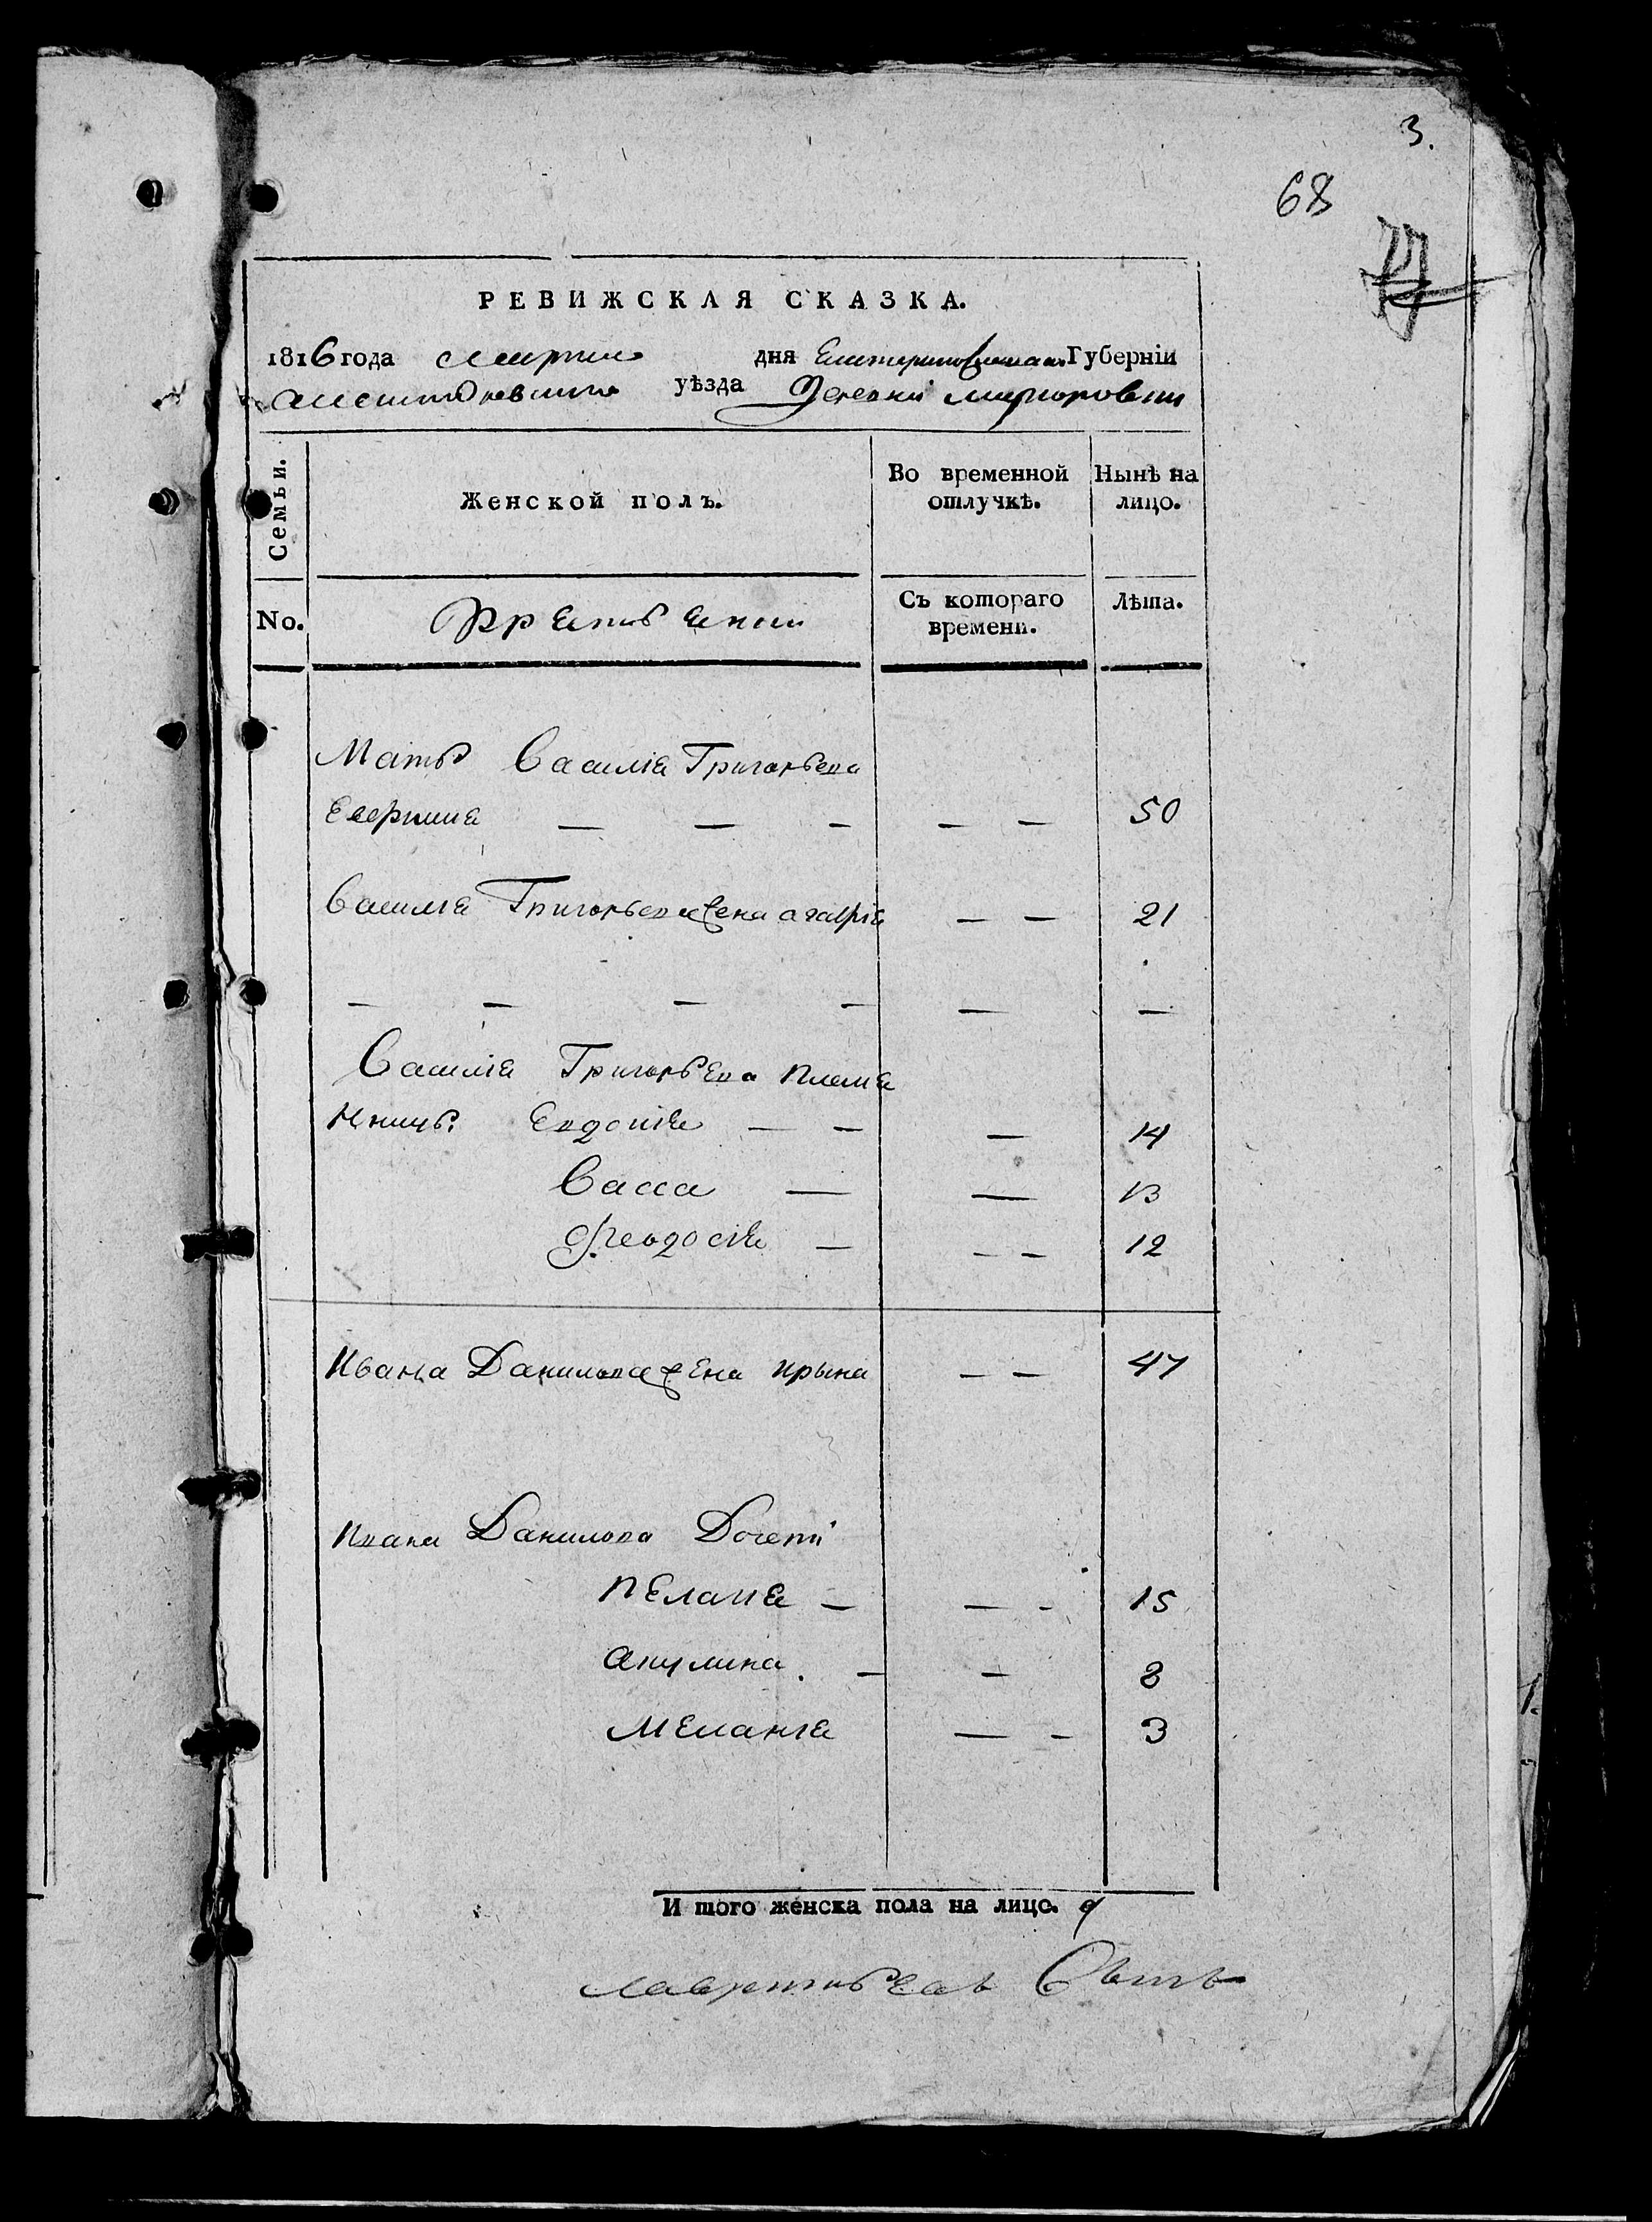 3.
68
77
РЕВИЖСКАЯ СКАЗКА.
1816 года марта дня Екатеринославской Губерніи
уѣзда Деревни
Семьи. Женской полъ. Во временной отлучкѣ. Нынѣ на лицо.
No. Съ котораго времени. Лѣта.
Мать Василія Григорьева
Евфимия — — — — — 50
Василія Григорьева жена агафія — — 21
— — — — — —
Василія Григорьева племя
нницы: Евдокія — — — 14
Васса — — 13
Феодосія — — — 12
Ивана Данилова жена ирына — — 47
Ивана Данилова Дочери
пелагия — — - 15
акулина. — — 8
меланія — - 3
И того женска пола на лицо. 9